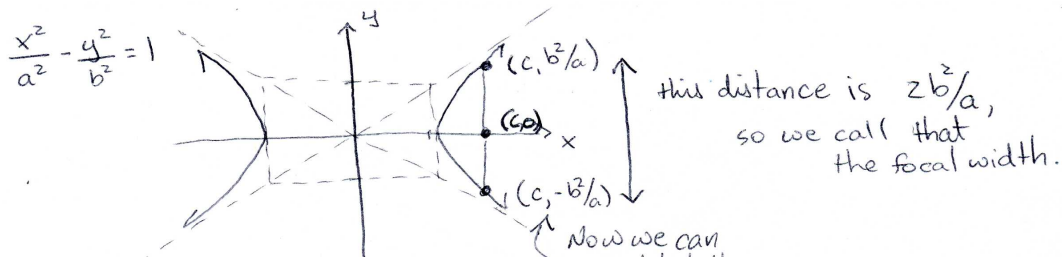 x²/a² - y²/b² = 1
y
(c, b²/a)
(c,0)
x
(c, -b²/a)
this distance is 2b²/a,
so we call that
the focal width.
Now we can